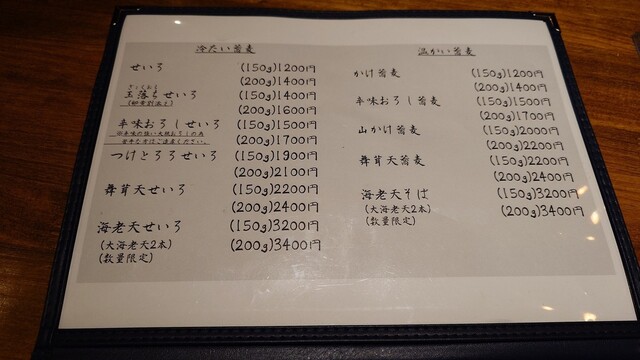 冷たい蕎麦
せいろ (150g)1200円
(200g)1400円
ぎょくおち
玉落ちせいろ (150g)1400円
(200g)1600円
辛味おろしせいろ (150g)1500円
(200g)1700円
つけとろろせいろ (150g)1900円
(200g)2100円
舞茸天せいろ (150g)2200円
(200g)2400円
海老天せいろ (150g)3200円
(大海老天2本) (200g)3400円
(数量限定)
温かい蕎麦
かけ蕎麦 (150g)1200円
(200g)1400円
辛味おろし蕎麦 (150g)1500円
(200g)1700円
山かけ蕎麦 (150g)2000円
(200g)2200円
舞茸天蕎麦 (150g)2200円
(200g)2400円
海老天そば (150g)3200円
(大海老天2本) (200g)3400円
(数量限定)